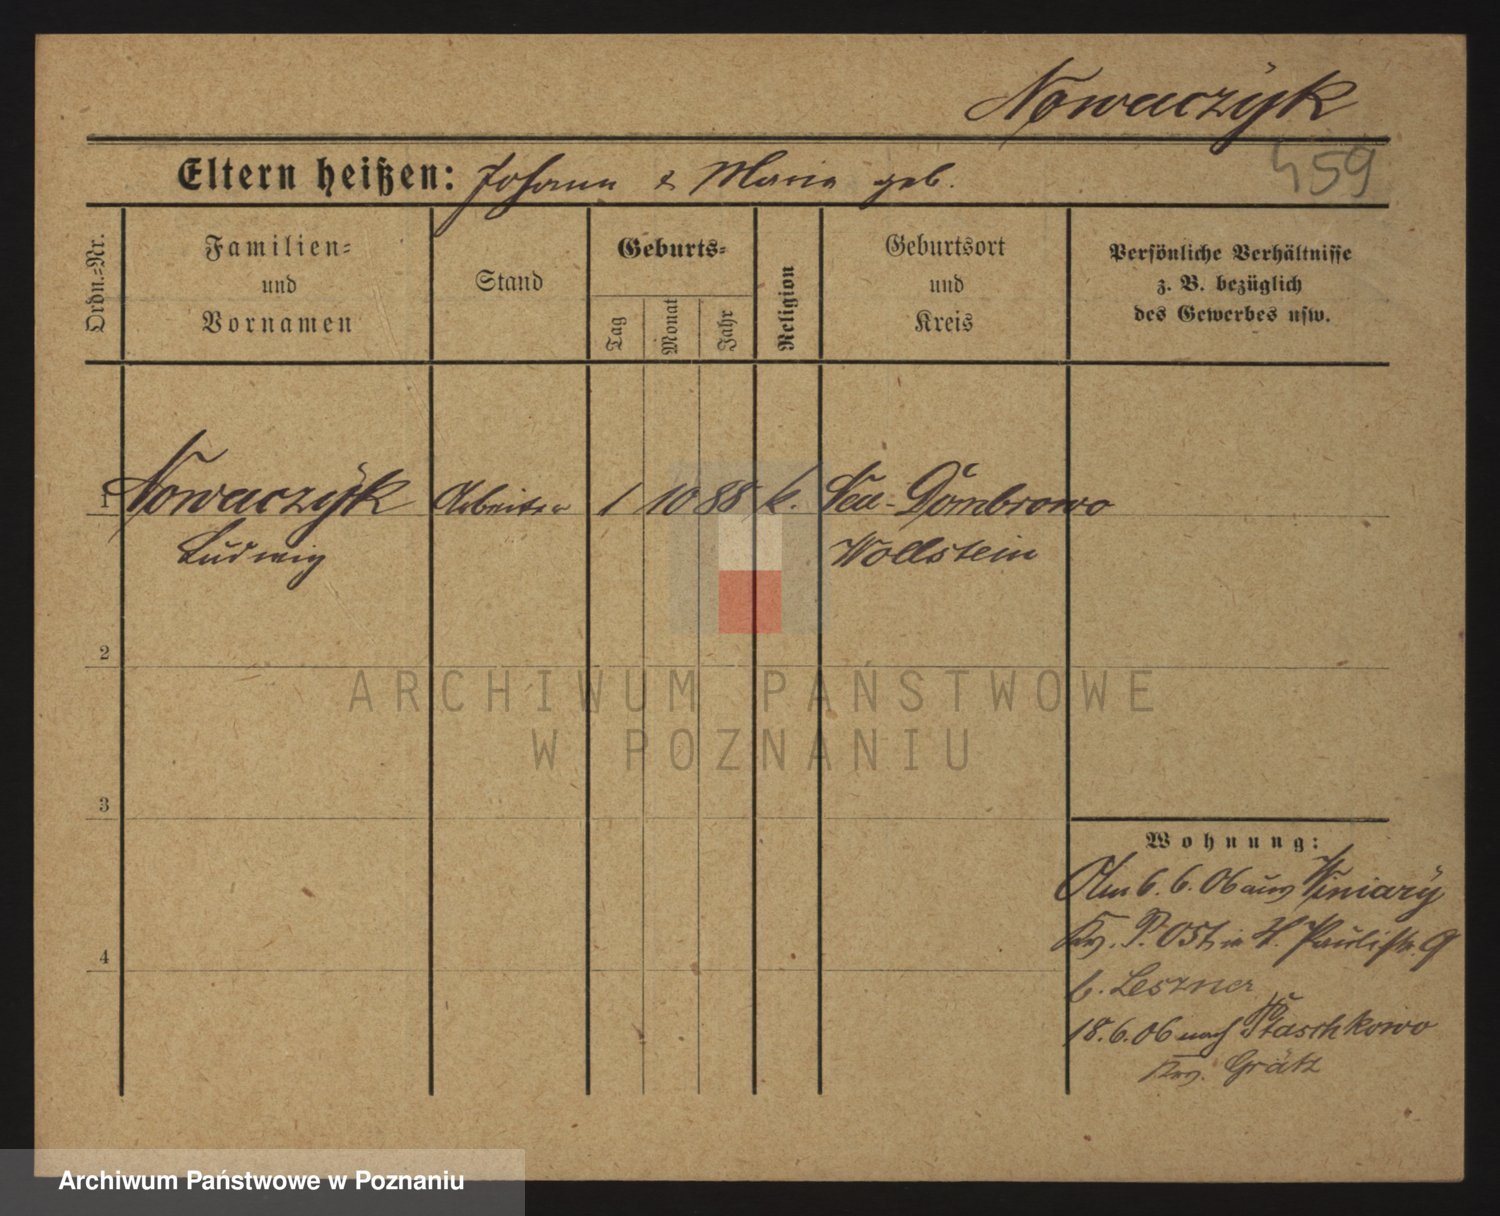 Nowaczyk
459
Eltern heißen: Johann & Maria geb.
Ordn.=Nr.
Familien=
und
Vornamen
Stand
Geburts=
Tag
Monat
Jahr
Religion
Geburtsort
und
Kreis
Persönliche Verhältnisse
z. B. bezüglich
des Gewerbes usw.
1 Nowaczyk Arbeiter 1 10 88 k. Neu-Dombrowo
Ludwig Wollstein
2
ARCHIWUM PAŃSTWOWE
W POZNANIU
3
Wohnung:
Am 6. 6. 06 aus Winiary
Krs. P. Ost in H. Paulistr. 9
b. Leszner
4
18.6.06 nach Ptaschkowo
Krs. Grätz
Archiwum Państwowe w Poznaniu